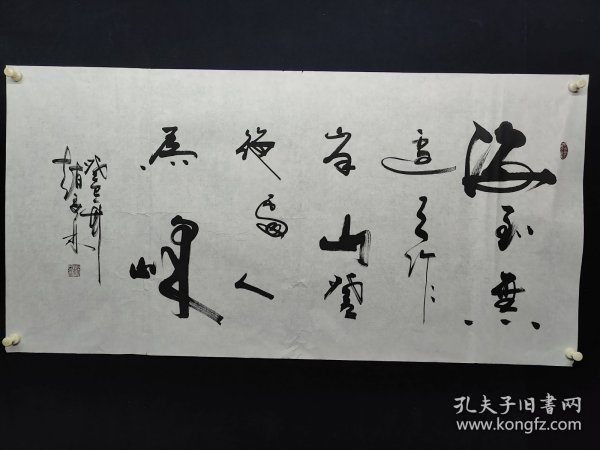 海到無
邊天作
岸山登
絕處人
為峰
孔夫子旧書网
www.kongfz.com